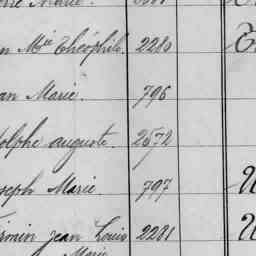 Marie.
n Mie Théophile. 2280
an Marie. 796
dolphe auguste. 2572
seph Marie. 797
irmin jean Louis 2281
Marie